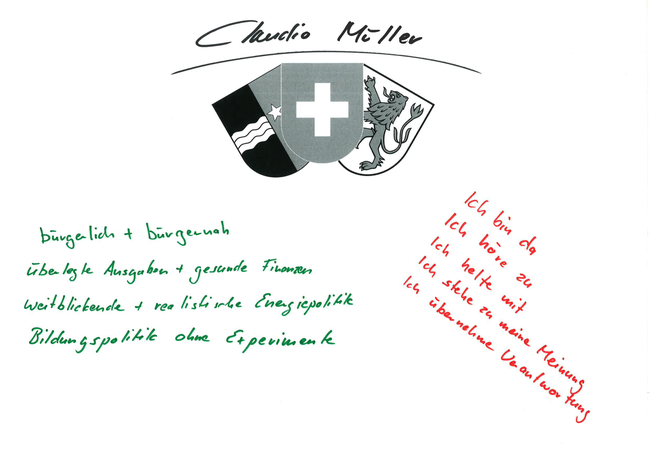 Claudio Müller
bürgerlich + bürgernah
überlegte Ausgaben + gesunde Finanzen
weitblickende + realistische Energiepolitik
Bildungspolitik ohne Experimente
Ich bin da
Ich höre zu
Ich helfe mit
Ich stehe zu meine Meinung
Ich übernehme Verantwortung